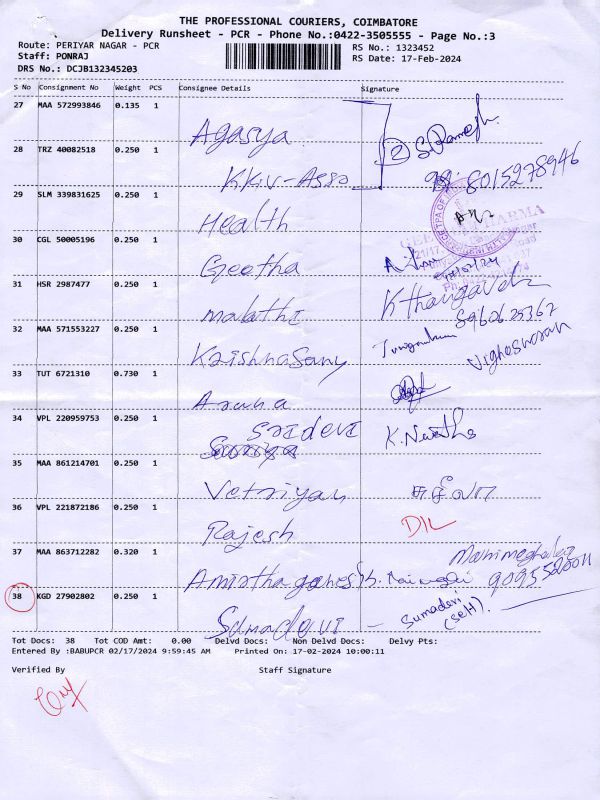 THE PROFESSIONAL COURIERS, COIMBATORE
Delivery Runsheet - PCR - Phone No.:0422-3505555 - Page No.:3
Route: PERIYAR NAGAR - PCR
RS No.: 1323452
Staff: PONRAJ
RS Date: 17-Feb-2024
DRS No.: DCJB132345203
S No Consignment No Weight PCS Consignee Details Signature
27 MAA 572993846 0.135 1
Agasya
② S. Ramesh
28 TRZ 40082518 0.250 1
KKIV-Asso
8015278946
29 SLM 339831625 0.250 1
Health
30 CGL 50005196 0.250 1
Geetha
31 HSR 2987477 0.250 1
malathi
K Thangavel
8960625367
32 MAA 571553227 0.250 1
Krishnasamy
Vigheswaran
33 TUT 6721310 0.730 1
Aruna
34 VPL 220959753 0.250 1
Sridevi
35 MAA 861214701 0.250 1
Vetriyan
36 VPL 221872186 0.250 1
Rajesh
D/L
37 MAA 863712282 0.320 1
Amirthaganesh
38 KGD 27902802 0.250 1
Sumadevi - Sumadevi
(SELF).
Tot Docs: 38 Tot COD Amt: 0.00 Delvd Docs: Non Delvd Docs: Delvy Pts:
Entered By :BABUPCR 02/17/2024 9:59:45 AM Printed On: 17-02-2024 10:00:11
Verified By Staff Signature